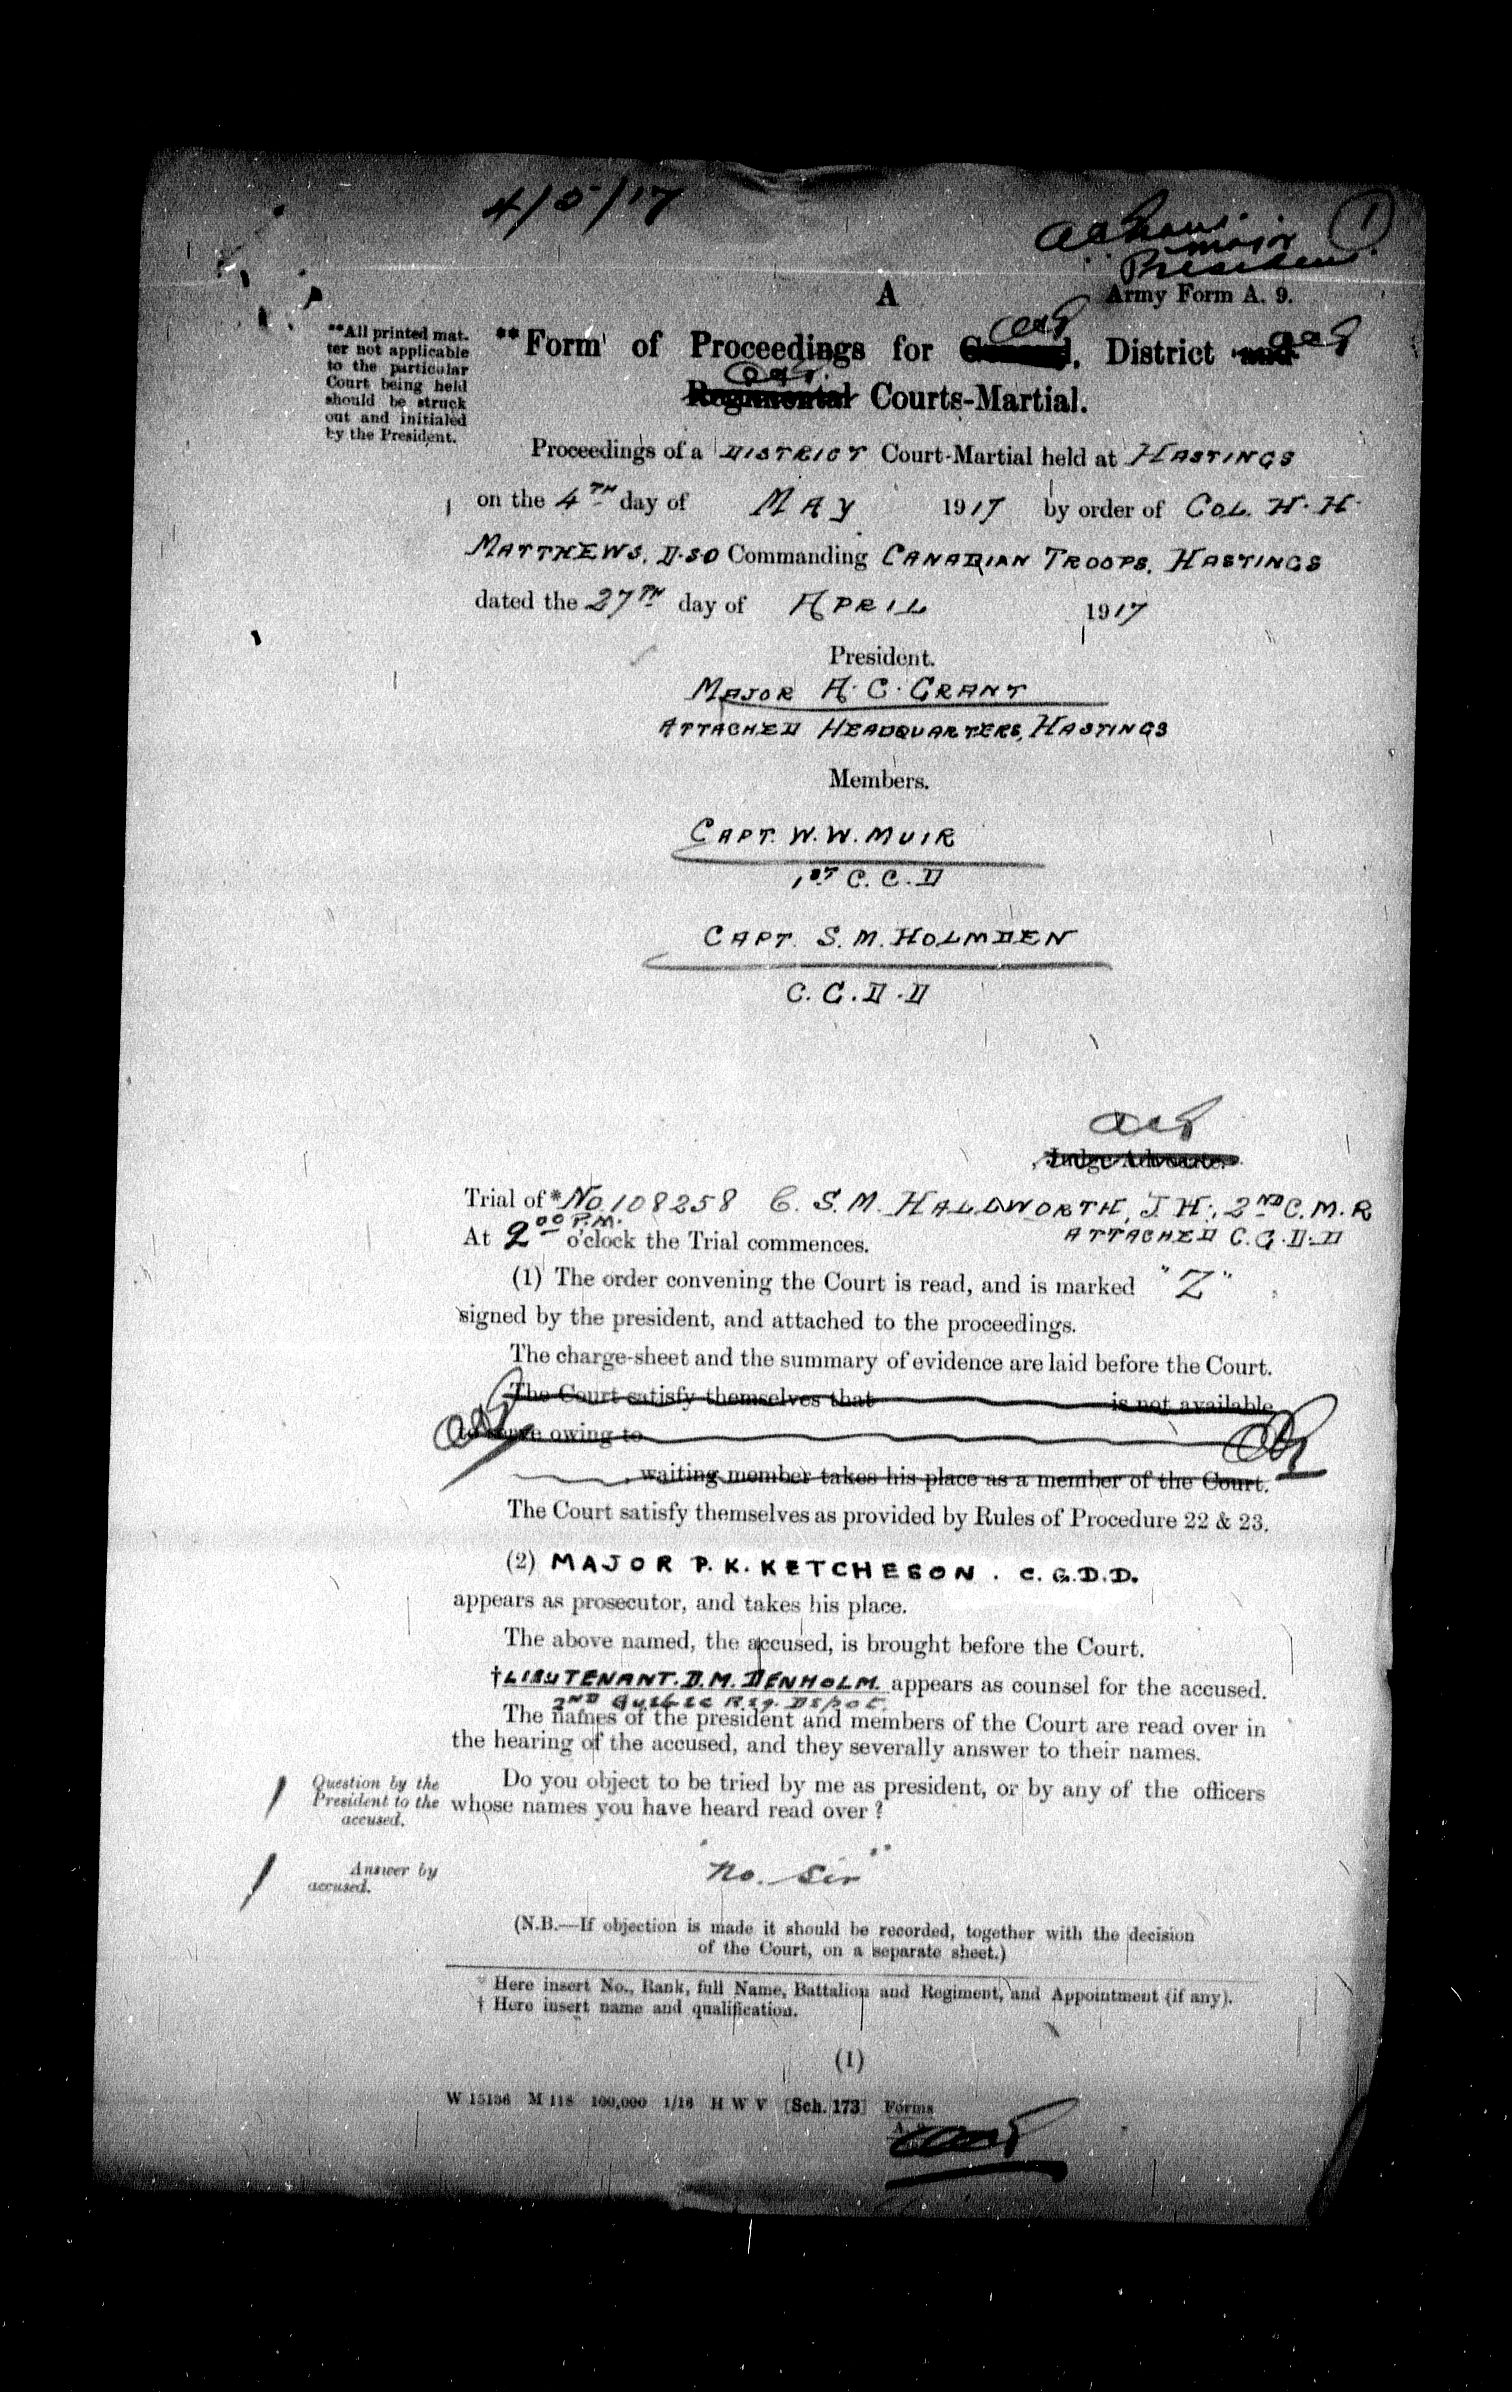 4/5/17
1
Major
President.
A
Army Form A. 9.
**All printed mat-
ter not applicable
to the particular
Court being held
should be struck
out and initialed
by the President.
**Form of Proceedings for General, District and
Regimental Courts-Martial.
Proceedings of a DISTRICT Court-Martial held at HASTINGS
on the 4TH day of MAY 1917 by order of COL. H. H.
MATTHEWS. D.S.O Commanding CANADIAN TROOPS. HASTINGS
dated the 27TH day of APRIL 1917
President.
MAJOR A. C. GRANT
ATTACHED HEADQUARTERS, HASTINGS
Members.
CAPT. W. W. MUIR
1ST C. C. D
CAPT. S. M. HOLMDEN
C. C. D. D
Judge-Advocate.
Trial of *No. 108258 C. S. M. HALDWORTH, J. H., 2ND C. M. R
ATTACHED C. C. D. D
At 2 00 P.M. o'clock the Trial commences.
(1) The order convening the Court is read, and is marked "Z"
signed by the president, and attached to the proceedings.
The charge-sheet and the summary of evidence are laid before the Court.
The Court satisfy themselves that is not available
to serve owing to
, waiting member takes his place as a member of the Court.
The Court satisfy themselves as provided by Rules of Procedure 22 & 23.
(2) MAJOR P. K. KETCHESON. C. G. D. D.
appears as prosecutor, and takes his place.
The above named, the accused, is brought before the Court.
†LIEUTENANT. D. M. DENHOLM. appears as counsel for the accused.
2ND Quebec Reg. Depot.
The names of the president and members of the Court are read over in
the hearing of the accused, and they severally answer to their names.
Question by the
President to the
accused.
Do you object to be tried by me as president, or by any of the officers
whose names you have heard read over ?
Answer by
accused.
"No. Sir"
(N.B.—If objection is made it should be recorded, together with the decision
of the Court, on a separate sheet.)
* Here insert No., Rank, full Name, Battalion and Regiment, and Appointment (if any).
† Here insert name and qualification.
(1)
W 15136 M 118 100,000 1/16 H W V [Sch. 173] Forms